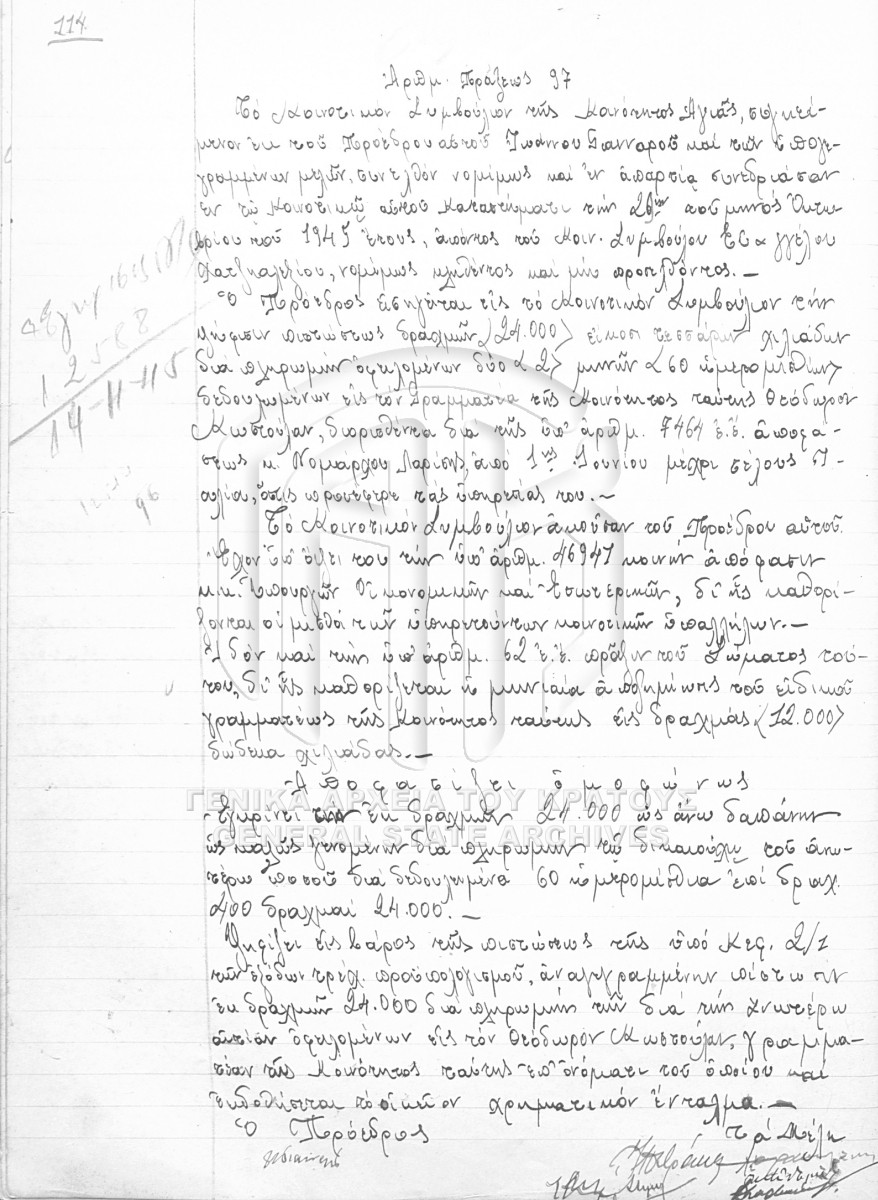 114.
Ἀριθμ. Πράξεως 97
Τό Κοινοτικόν Συμβούλιον τῆς Κοινότητος Ἁγιᾶς, συγκεί-
μενον ἐκ τοῦ Προέδρου αὐτοῦ Ἰωάννου Γιανναροῦ καί τῶν ὑπογε-
γραμμένων μελῶν, συνελθόν νομίμως καί ἐν ἀπαρτίᾳ συνεδριάσαν
ἐν τῷ Κοινοτικῷ αὐτοῦ Καταστήματι τήν 20ήν τοῦ μηνός Ὀκτω-
βρίου τοῦ 1945 ἔτους, ἀπόντος τοῦ Κοιν. Συμβούλου Εὐαγγέλου
Χατζηαλεξίου, νομίμως κληθέντος καί μή προσελθόντος.—
Ὁ Πρόεδρος εἰσηγεῖται εἰς τό Κοινοτικόν Συμβούλιον τήν
ψήφισιν πιστώσεως δραχμῶν (24.000) εἴκοσι τεσσάρων χιλιάδων
διά πληρωμήν ὀφειλομένων δύο (2) μηνῶν (60 ἡμερομισθίων)
δεδουλωμένων εἰς τόν Γραμματέα τῆς Κοινότητος ταύτης Θεόδωρον
Κωστούλαν, διορισθέντα διά τῆς ὑπ' ἀριθμ. 7464 ἐ.ἔ. ἀποφά-
σεως κ. Νομάρχου Λαρίσης, ἀπό 1ης Ἰουνίου μέχρι τέλους Ἰ-
ουλίου, ὅστις προσέφερε τάς ὑπηρεσίας του.—
Τό Κοινοτικόν Συμβούλιον ἀκοῦσαν τοῦ Προέδρου αὐτοῦ.
Ἔχον ὑπ' ὄψει του τήν ὑπ' ἀριθμ. 46941 κοινήν ἀπόφασιν
κ.κ. Ὑπουργῶν Οἰκονομικῶν καί Ἐσωτερικῶν, δι' ἧς καθορί-
ζονται οἱ μισθοί τῶν ὑπηρετούντων κοινοτικῶν ὑπαλλήλων.—
Ἰδόν καί τήν ὑπ' ἀριθμ. 62 ἐ.ἔ. πρᾶξιν τοῦ Σώματος τού-
του, δι' ἧς καθορίζεται ἡ μηνιαία ἀποζημίωσις τοῦ εἰδικοῦ
γραμματέως τῆς Κοινότητος ταύτης εἰς δραχμάς (12.000)
δώδεκα χιλιάδας.—
Ἀποφασίζει ὁμοφώνως
Ἐγκρίνει τήν ἐκ δραχμῶν 24.000 ὡς ἄνω δαπάνην
ὡς καλῶς γενομένην διά πληρωμήν τῷ δικαιούχῳ τοῦ ἀνω-
τέρω ποσοῦ διά δεδουλημένα 60 ἡμερομίσθια ἐπί δραχ.
400 δραχμαί 24.000.—
Ψηφίζει εἰς βάρος τῆς πιστώσεως τῆς ὑπό Κεφ. 2/1
τῶν ἐξόδων τρέχ. προϋπολογισμοῦ, ἀναγεγραμμένην πίστωσιν
ἐκ δραχμῶν 24.000 διά πληρωμήν τῶν διά τήν ἀνωτέρω
αἰτίαν ὀφειλομένων εἰς τόν Θεόδωρον Κωστούλαν, γραμμα-
τέαν τῆς Κοινότητος ταύτης ἐπ' ὀνόματι τοῦ ὁποίου καί
ἐκδοθήσεται τό οἰκεῖον χρηματικόν ἔνταλμα.—
Ὁ Πρόεδρος Τά Μέλη
12588
14-11-45
96
ΓΕΝΙΚΑ ΑΡΧΕΙΑ ΤΟΥ ΚΡΑΤΟΥΣ
GENERAL STATE ARCHIVES